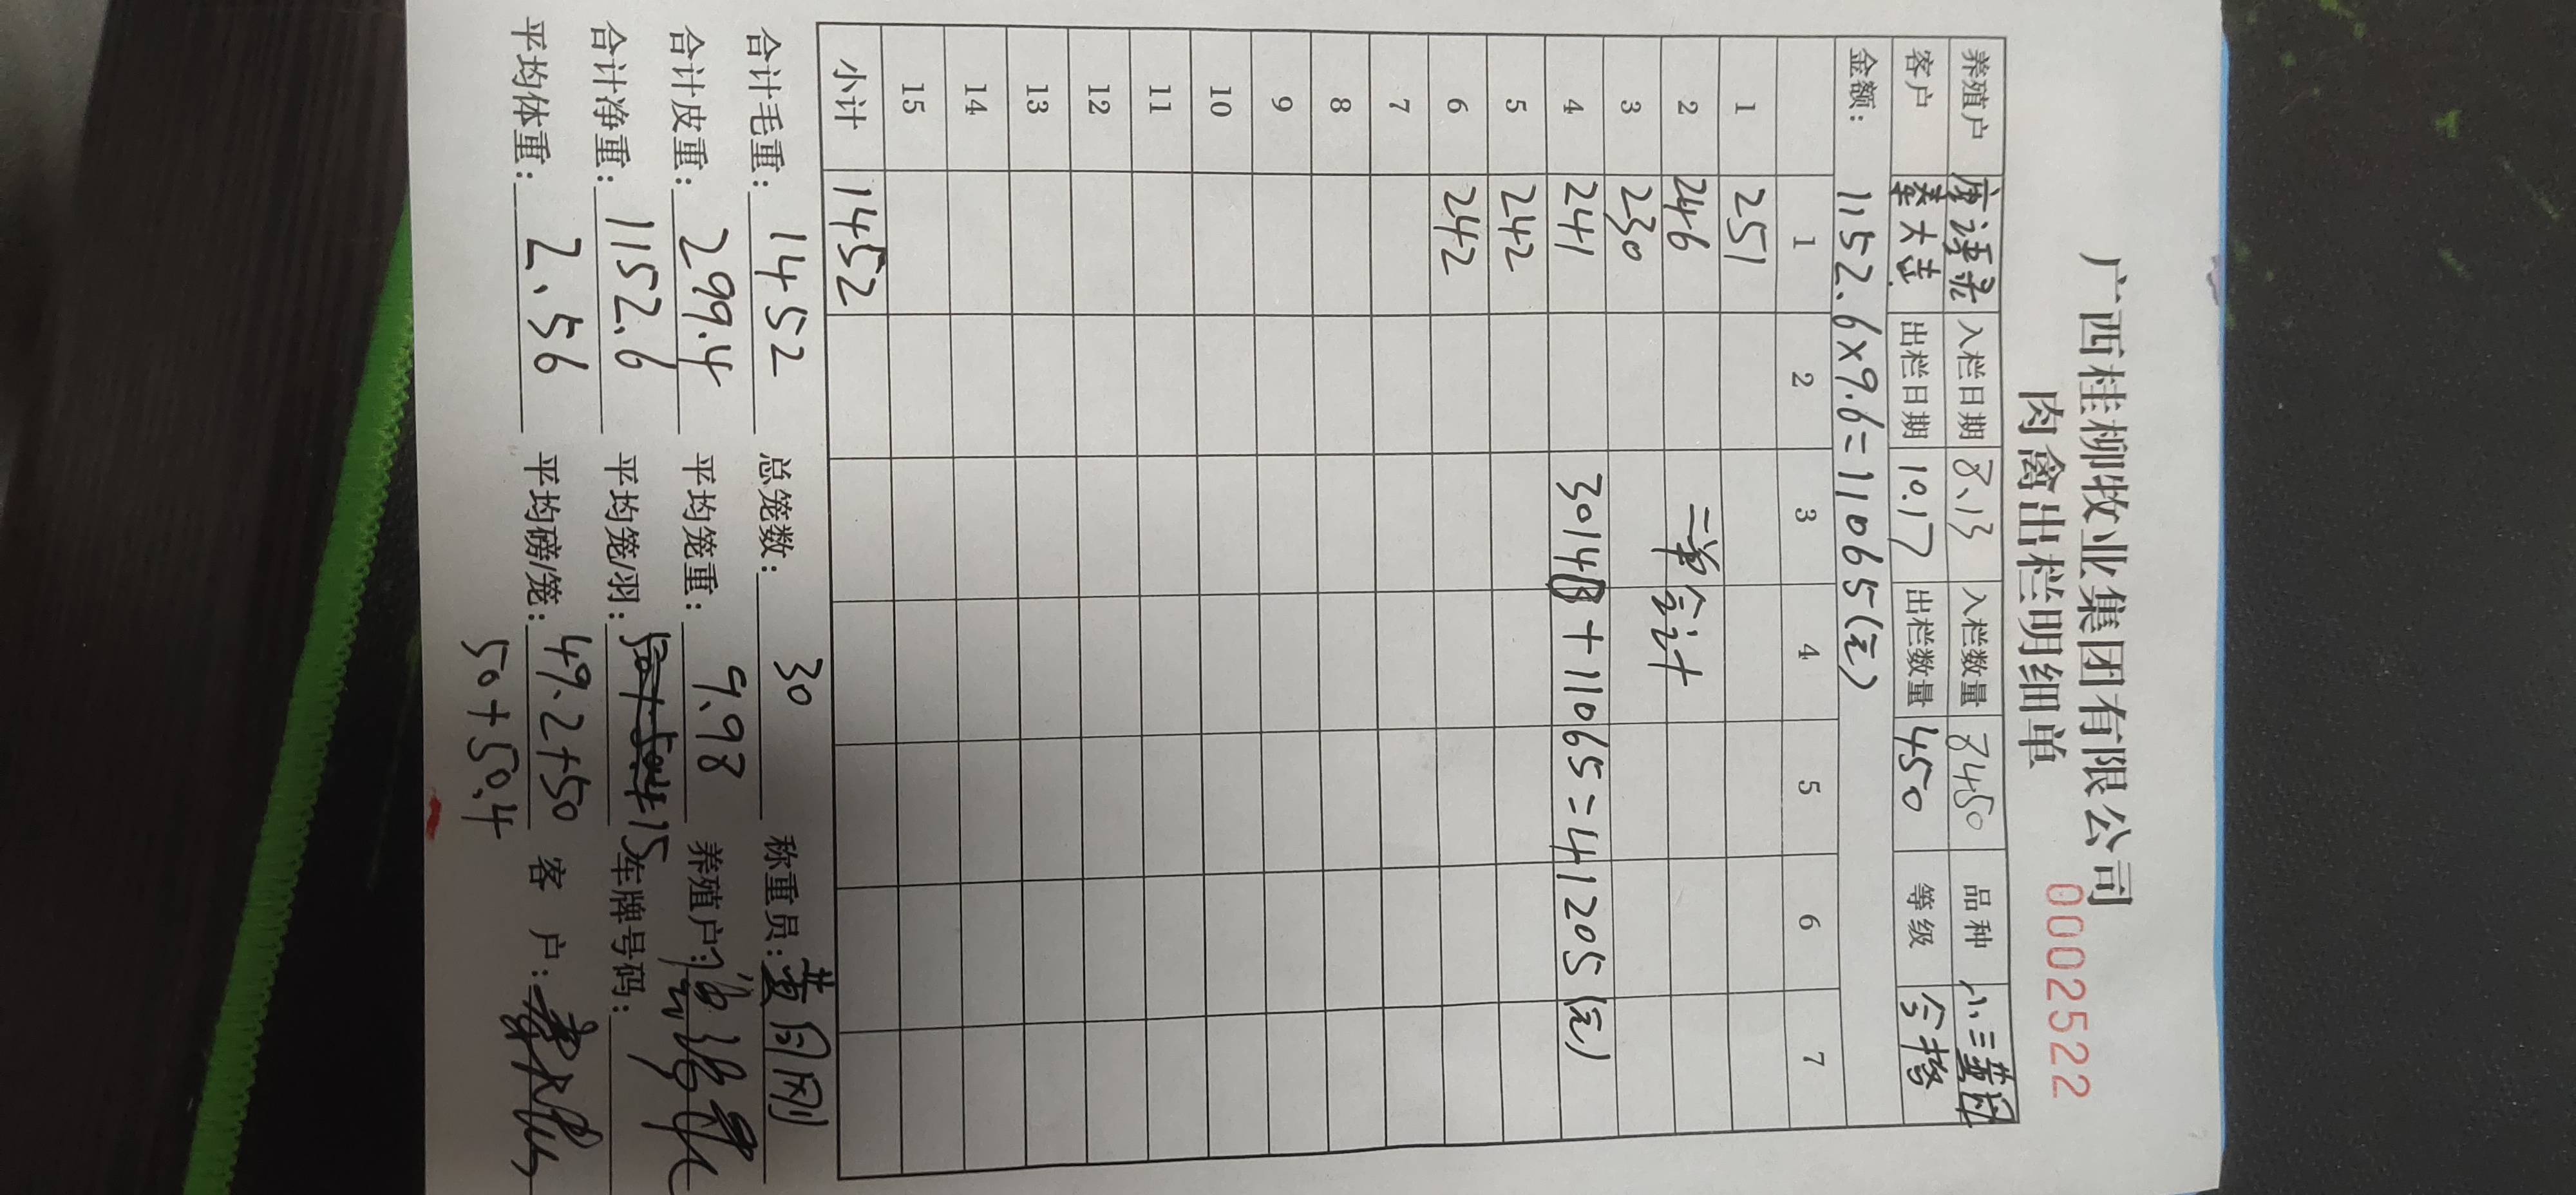 广西桂柳牧业集团有限公司
肉禽出栏明细单 00025522
养殖户 入栏日期 8.13 入栏数量 8450 品种 小三黄
客户 秦大 出栏日期 10.17 出栏数量 450 等级 合格
金额: 1152.6×9.6=11065(元)
1 2 3 4 5 6 7
1 251
2 246 二单合计
3 230
4 241 3014 +11065=41205(元)
5 242
6 242
7
8
9
10
11
12
13
14
15
小计 1452
合计毛重: 1452 总笼数: 30 称重员: 黄月刚
合计皮重: 299.4 平均笼重: 9.98 养殖户:
合计净重: 1152.6 平均笼/羽: 15 车牌号码:
平均体重: 2.56 平均磅/笼: 49.2+50 客 户:
50+50.4